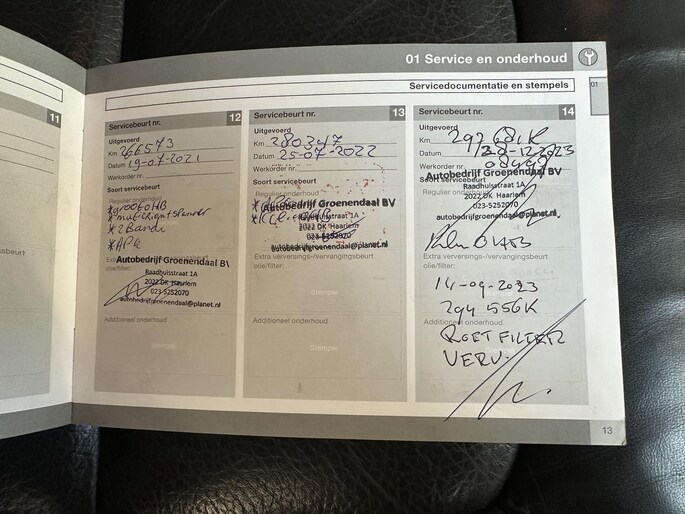 01 Service en onderhoud
Servicedocumentatie en stempels
01
11
Servicebeurt nr. 12
Uitgevoerd
Km 266573
Datum 19-07-2021
Werkorder nr.
Soort servicebeurt
Regulier onderhoud
*groot OHB
*
*2 Band
*APK
Autobedrijf Groenendaal BV
Raadhuisstraat 1A
2022 DK Haarlem
023-5252070
autobedrijfgroenendaal@planet.nl
olie/filter:
Additioneel onderhoud
Stempel
Servicebeurt nr. 13
Uitgevoerd
Km 280347
Datum 25-07-2022
Werkorder nr.
Soort servicebeurt
Regulier onderhoud
Autobedrijf Groenendaal BV
Raadhuisstraat 1A
2022 DK Haarlem
023-5252070
autobedrijfgroenendaal@planet.nl
Extra verversings-/vervangingsbeurt
olie/filter:
Stempel
Additioneel onderhoud
Stempel
Servicebeurt nr. 14
Uitgevoerd
Km
Datum
Werkorder nr.
Soort servicebeurt
Autobedrijf Groenendaal BV
Regulier onderhoud
Raadhuisstraat 1A
2022 DK Haarlem
023-5252070
autobedrijfgroenendaal@planet.nl
Extra verversings-/vervangingsbeurt
olie/filter:
14-09-2023
294 556K
Additioneel onderhoud
ROET FILTER
VERV.
13